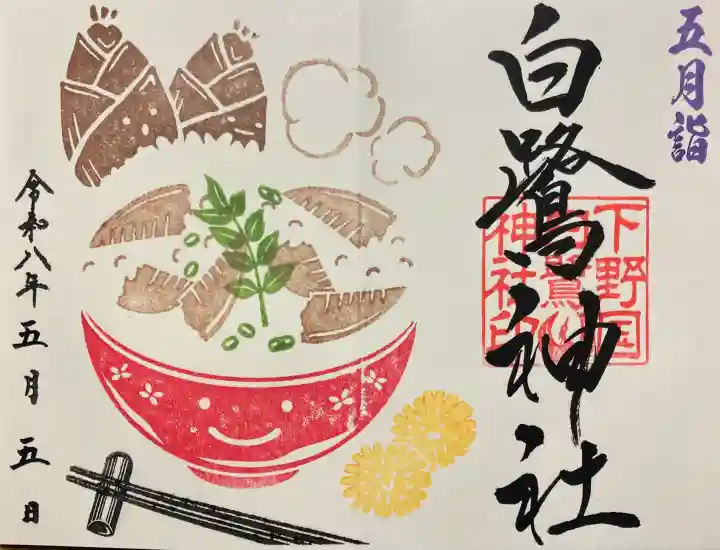 五月詣
白鷺神社
下野国
白鷺山
神社印
令和八年五月五日